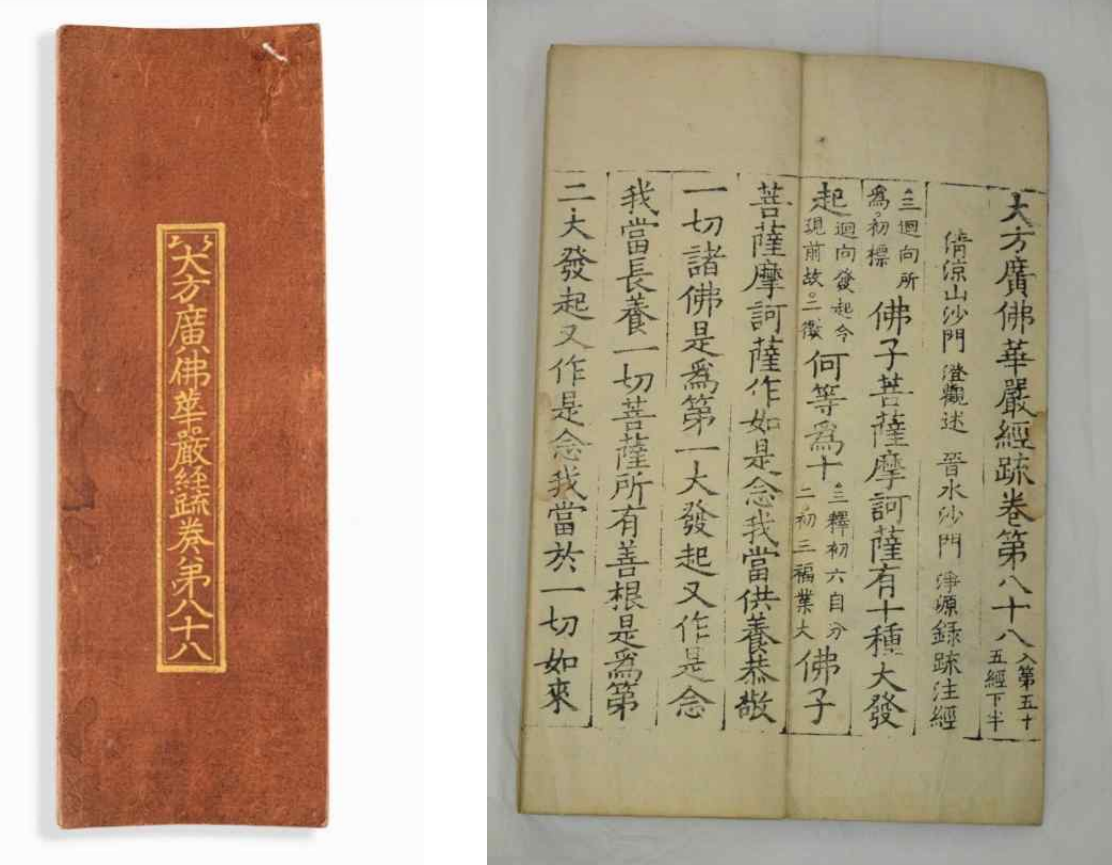 大方廣佛華嚴経䟽卷第八十八
大方廣佛華嚴經䟽卷第八十八 入第五十五經下半
清涼山沙門 澄觀述 晉水沙門 淨源錄䟽注經
三迴向所爲初標 佛子菩薩摩訶薩有十種大發
起 迴向發起今現前故二徵 何等爲十 三釋初六自分二初三福業大 佛子
菩薩摩訶薩作如是念我當供養恭敬
一切諸佛是爲第一大發起又作是念
我當長養一切菩薩所有善根是爲第
二大發起又作是念我當於一切如來